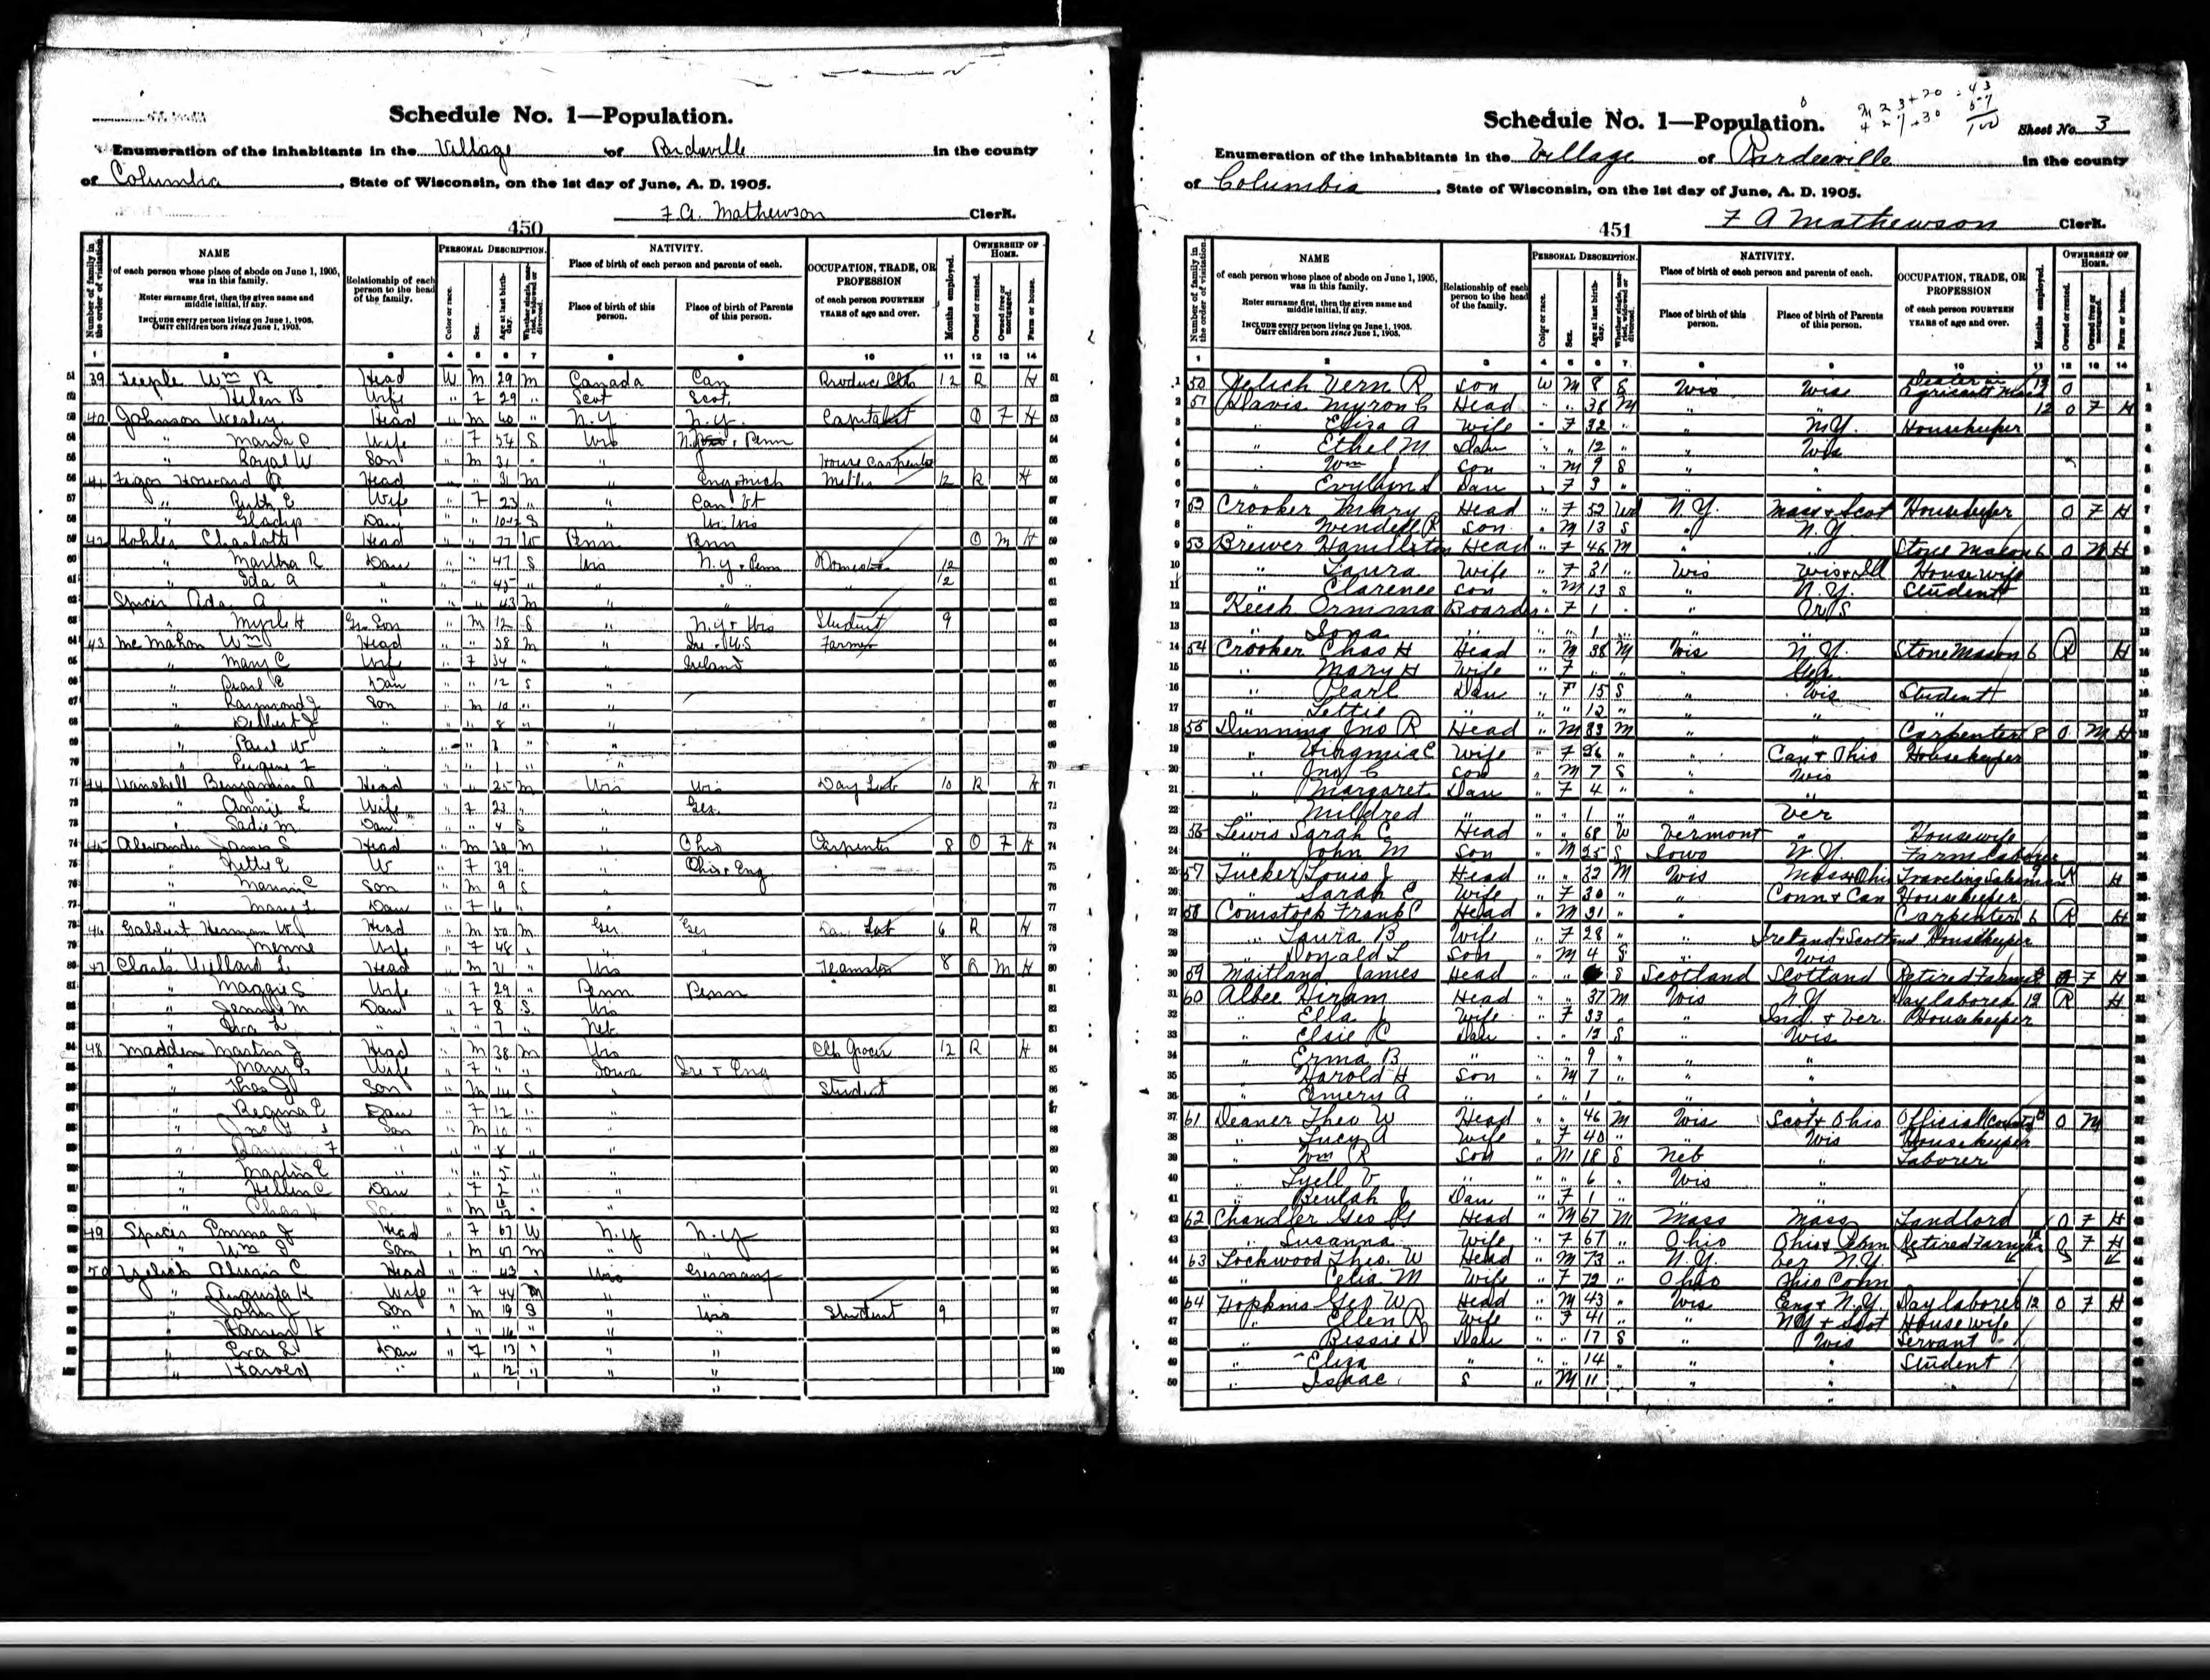 Schedule No. 1—Population.
Enumeration of the inhabitants in the Village of Pardeeville in the county
of Columbia, State of Wisconsin, on the 1st day of June, A. D. 1905.
F. A. Mathewson Clerk.
450
Number of family in the order of visitation.
NAME
of each person whose place of abode on June 1, 1905, was in this family.
Enter surname first, then the given name and middle initial, if any.
INCLUDE every person living on June 1, 1905.
OMIT children born since June 1, 1905.
Relationship of each person to the head of the family.
PERSONAL DESCRIPTION.
Color or race.
Sex.
Age at last birthday.
Whether single, married, widowed or divorced.
NATIVITY.
Place of birth of each person and parents of each.
Place of birth of this person.
Place of birth of Parents of this person.
OCCUPATION, TRADE, OR PROFESSION
of each person FOURTEEN YEARS of age and over.
Months employed.
OWNERSHIP OF HOME.
Owned or rented.
Owned free or mortgaged.
Farm or house.
1 2 3 4 5 6 7 8 9 10 11 12 13 14
51 39 Wm R Head W M 29 M Canada Can Produce 12 R H 51
52 Helen B Wife " F 29 " Scot Scot
53 40 Johnson Wesley Head " M 60 " N.Y N.Y. Capitalist O F H 53
54 " Maria C Wife " F 54 S Wis Penn 54
55 " Royal W Son " M 31 " " House Carpenter 55
56 41 Howard Head " " 31 M " Eng + Mich Miller 12 R H 56
57 " Ruth E Wife " F 23 " " Can Vt 57
58 " Gladys Dau " " 10-12 S " 58
59 42 Kohler Charlotte Head " " 77 W Penn Penn O M H 59
60 " Martha R Dau " " 47 S Wis N.Y + Penn Domestic 12 60
61 " Ida A " " " 45 " " " 12 61
62 Spicer Ada A " " " 43 M " " 62
63 " Myrle H Gr Son " M 12 S " N.Y + Wis Student 9 63
64 43 McMahon Wm Head " " 38 M " Ire + U.S Farmer 64
65 " Mary C Wife " F 34 " " Ireland 65
66 " Pearl E Dau " " 12 S " 66
67 " Raymond J Son " M 10 " " 67
68 " Delbert J " " " 8 " 68
69 " Paul W " " " " " 69
70 " Eugene F " " 1 " " 70
71 44 Benjamin A Head " " 25 M Wis Wis Day Lab 10 R H 71
72 " Annie L Wife " F 23 " " Ger. 72
73 " Sadie M Dau " " 4 S " 73
74 45 Alexander James S Head " M M " Ohio Carpenter 8 O F H 74
75 " Nettie E W " F 39 " " Ohio + Eng 75
76 " C Son " M 9 S " 76
77 " Mary L Dau " F 6 " " 77
78 46 Herman W Head " M 50 M Ger Ger Day Lab 6 R H 78
79 " Menne Wife " F 48 " " 79
80 47 Clark Willard L Head " M 31 " Wis Teamster 8 R M H 80
81 " Maggie S Wife " F 29 " Penn Penn 81
82 " Jennie M Dau " F 8 S. Wis 82
83 " L " " " 7 " Neb 83
84 48 Madden Martin J Head " M 38 M Wis Clk Grocer 12 R H 84
85 " Mary E Wife " F " " Iowa Ire + Eng 85
86 " Thos J Son " M 14 S " Student 86
87 " Regina E Dau " F 12 " " 87
88 " Son " M 10 " 88
89 " F " 8 " 89
90 " Martin E " " " 5 " " 90
91 " Hellen C Dau " F 2 " " 91
92 " " M " 92
93 49 Spicer Emma J Head " F 67 W N.Y N.Y 93
94 " Wm J Son " M 47 M " 94
95 50 Jelich C Head " " 43 " Wis Germany 95
96 " Augusta K Wife " F 44 M " 96
97 " John J Son " M 19 S " Wis Student 9 97
98 " H " " " 16 " " " 98
99 " Eva L Dau " F 13 " " " 99
100 " Harold " " 12 " " " 100
Schedule No. 1—Population.
M 23+20 = 43
F 27+30 57
100
Sheet No. 3
Enumeration of the inhabitants in the Village of Pardeeville in the county
of Columbia, State of Wisconsin, on the 1st day of June, A. D. 1905.
F A Mathewson Clerk.
451
Number of family in the order of visitation.
NAME
of each person whose place of abode on June 1, 1905, was in this family.
Enter surname first, then the given name and middle initial, if any.
INCLUDE every person living on June 1, 1905.
OMIT children born since June 1, 1905.
Relationship of each person to the head of the family.
PERSONAL DESCRIPTION.
Color or race.
Sex.
Age at last birthday.
Whether single, married, widowed or divorced.
NATIVITY.
Place of birth of each person and parents of each.
Place of birth of this person.
Place of birth of Parents of this person.
OCCUPATION, TRADE, OR PROFESSION
of each person FOURTEEN YEARS of age and over.
Months employed.
OWNERSHIP OF HOME.
Owned or rented.
Owned free or mortgaged.
Farm or house.
1 2 3 4 5 6 7 8 9 10 11 12 13 14
1 50 Jelich Vern R Son W M 8 S Wis Wis Dealer in 12 O 1
2 51 Davis Myron C Head " " 38 M " " Agricult Mach 12 O F H 2
3 " Eliza A Wife " F 32 " " N.Y. Housekeeper 3
4 " Ethel M Dau " " 12 " " Wis 4
5 " Wm J Son " M 9 S " " 5
6 " Dau " F 3 " " " 6
7 52 Crooker Mary Head " F 52 Wd N.Y. Mass + Scot Housekeeper O F H 7
8 " Wendell R Son " M 13 S " N.Y. 8
9 53 Brewer Hamilton Head " F 46 M " " Stone Mason 6 O M H 9
10 " Laura Wife " F 31 " Wis Wis + Ill House wife 10
11 " Clarence Son " M 13 S " N.Y. Student 11
12 Keesh Ormma Boarder " F 1 " " 12
13 " Iona " " " 1 " " " 13
14 54 Crooker Chas H Head " M 38 M Wis N.Y. Stone Mason 6 R H 14
15 " Mary H Wife " F " " " 15
16 " Pearl Dau " F 15 S " Wis Student 16
17 " Lettie " " " 12 " " " " 17
18 55 Dunning Jno R Head " M 33 M " " Carpenter 8 O M H 18
19 " Virginia C Wife " F 26 " " Can + Ohio Housekeeper 19
20 " Jno C Son " M 7 S " Wis 20
21 " Margaret Dau " F 4 " " " 21
22 " Mildred " " " 1 " " Ver 22
23 56 Lewis Sarah C Head " " 68 W Vermont " Housewife 23
24 " John M Son " M 25 S Iowa N.Y. Farm Laborer 24
25 57 Tucker Louis J Head " " 32 M Wis Mass + Ohio Traveling Salesman R H 25
26 " Sarah E Wife " F 30 " " Conn + Can Housekeeper 26
27 58 Comstock Frank C Head " M 31 " " Carpenter 6 R H 27
28 " Laura B Wife " F 28 " " Ireland + Scotland Housekeeper 28
29 " Donald L Son " M 4 S " Wis 29
30 59 Maitland James Head " " S Scotland Scotland Retired Farmer F H 30
31 60 Albee Hiram Head " " 37 M Wis N.Y Day laborer 12 R H 31
32 " Ella J Wife " F 33 " " Ind + Ver. Housekeeper 32
33 " Elsie C Dau " " 12 S " Wis 33
34 " Erma B " " " 9 " " " 34
35 " Harold H Son " M 7 " " " 35
36 " Emery A " " " 1 " " " 36
37 61 Deaner Theo W Head " " 46 M Wis Scot + Ohio Official County O M 37
38 " Lucy A Wife " F 40 " " Wis Housekeeper 38
39 " Wm R Son " M 18 S Neb " Laborer 39
40 " Lyell V " " " 6 " Wis " 40
41 " Beulah J Dau " F 1 " " " 41
42 62 Chandler Geo Head " M 67 M Mass Mass Landlord O F H 42
43 " Susanna Wife " F 67 " Ohio Ohio + Penn Retired Farmer O F H 43
44 63 Lockwood Theo. W Head " M 73 " N.Y. Ver N.Y. 44
45 " Celia M Wife " F 72 " Ohio Ohio Conn 45
46 64 Hopkins Geo W Head " M 43 " Wis Eng + N.Y. Day laborer 12 O F H 46
47 " Ellen R Wife " F 41 " " N.Y + Scot House wife 47
48 " Bessie D Dau " " 17 S " Wis Servant 48
49 " Eliza " " " 14 " " " Student 49
50 " Isaac S " M 11 " " " 50